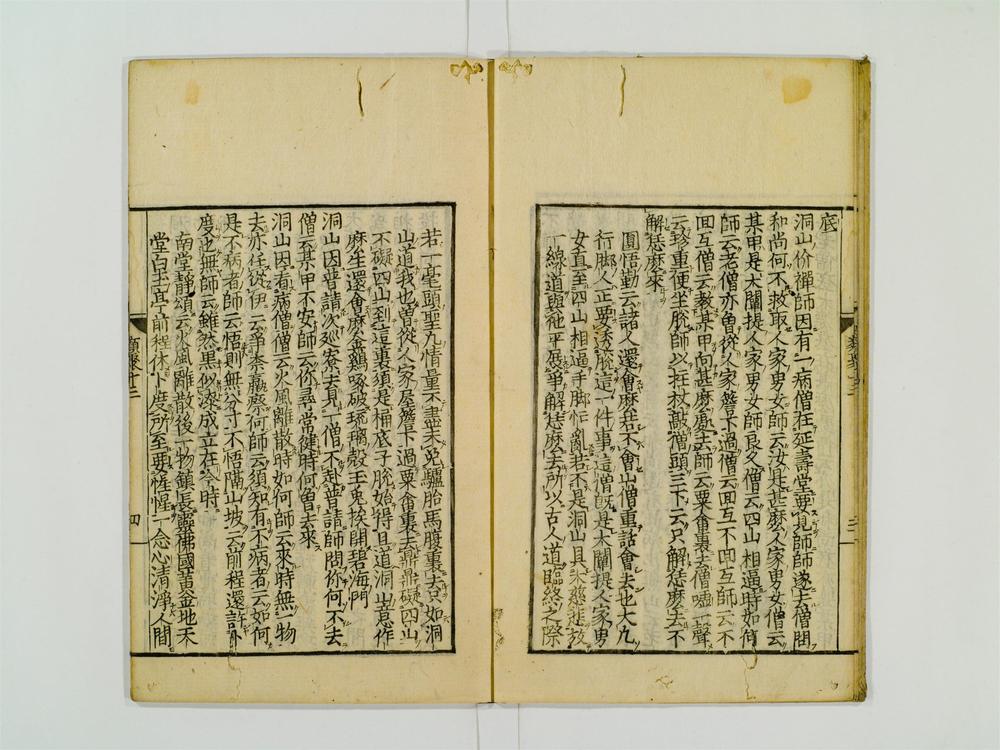 底
洞山价禪師因有一病僧在延壽堂要見師師遂去僧問
和尚何不救取人家男女師云汝是甚麼人家男女僧云
某甲是大闡提人家男女師良久僧云四山相逼時如何
師云老僧亦曾從人家簷下過僧云回互不回互師云不
回互僧云教某甲向甚麼處去師云粟畬裏去僧噓一聲
云珍重便坐脫師以拄杖敲僧頭三下云只解恁麼去不
解恁麼來
圓悟勤云諸人還會麼若不會山僧重話會去也大凡
行脚人正要透脫這一件事這僧既是大闡提人家男
女直至四山相逼手脚忙亂若不是洞山具大慈悲放
一線道與他平展爭解恁麼去所以古人道臨終之際
若一毫頭聖凡情量不盡未免驢胎馬腹裏去只如洞
山道我也曾從人家屋簷下過粟畬裏去鼎鼎礙四山
不礙四山到這裏須是桶底子脫始得且道洞山意作
麼生還會麼金鷄啄破琉璃殻玉兎挨開碧海門
洞山因普請次巡寮去見一僧不赴普請師問你何不去
僧云某甲不安師云你尋常健時何曾去來
洞山因看病僧僧云火風離散時如何師云來時無一物
去亦任從伊云爭奈羸瘵何師云須知有不病者云如何
是不病者師云悟則無分寸不悟隔山坡云前程還許卜
度也無師云雖然黒似漆成立在今時
南堂靜頌云火風離散後一物鎭長靈佛國黄金地天
堂白玉京前程休卜度所至要惺惺一念心清淨人間
類聚十三
四